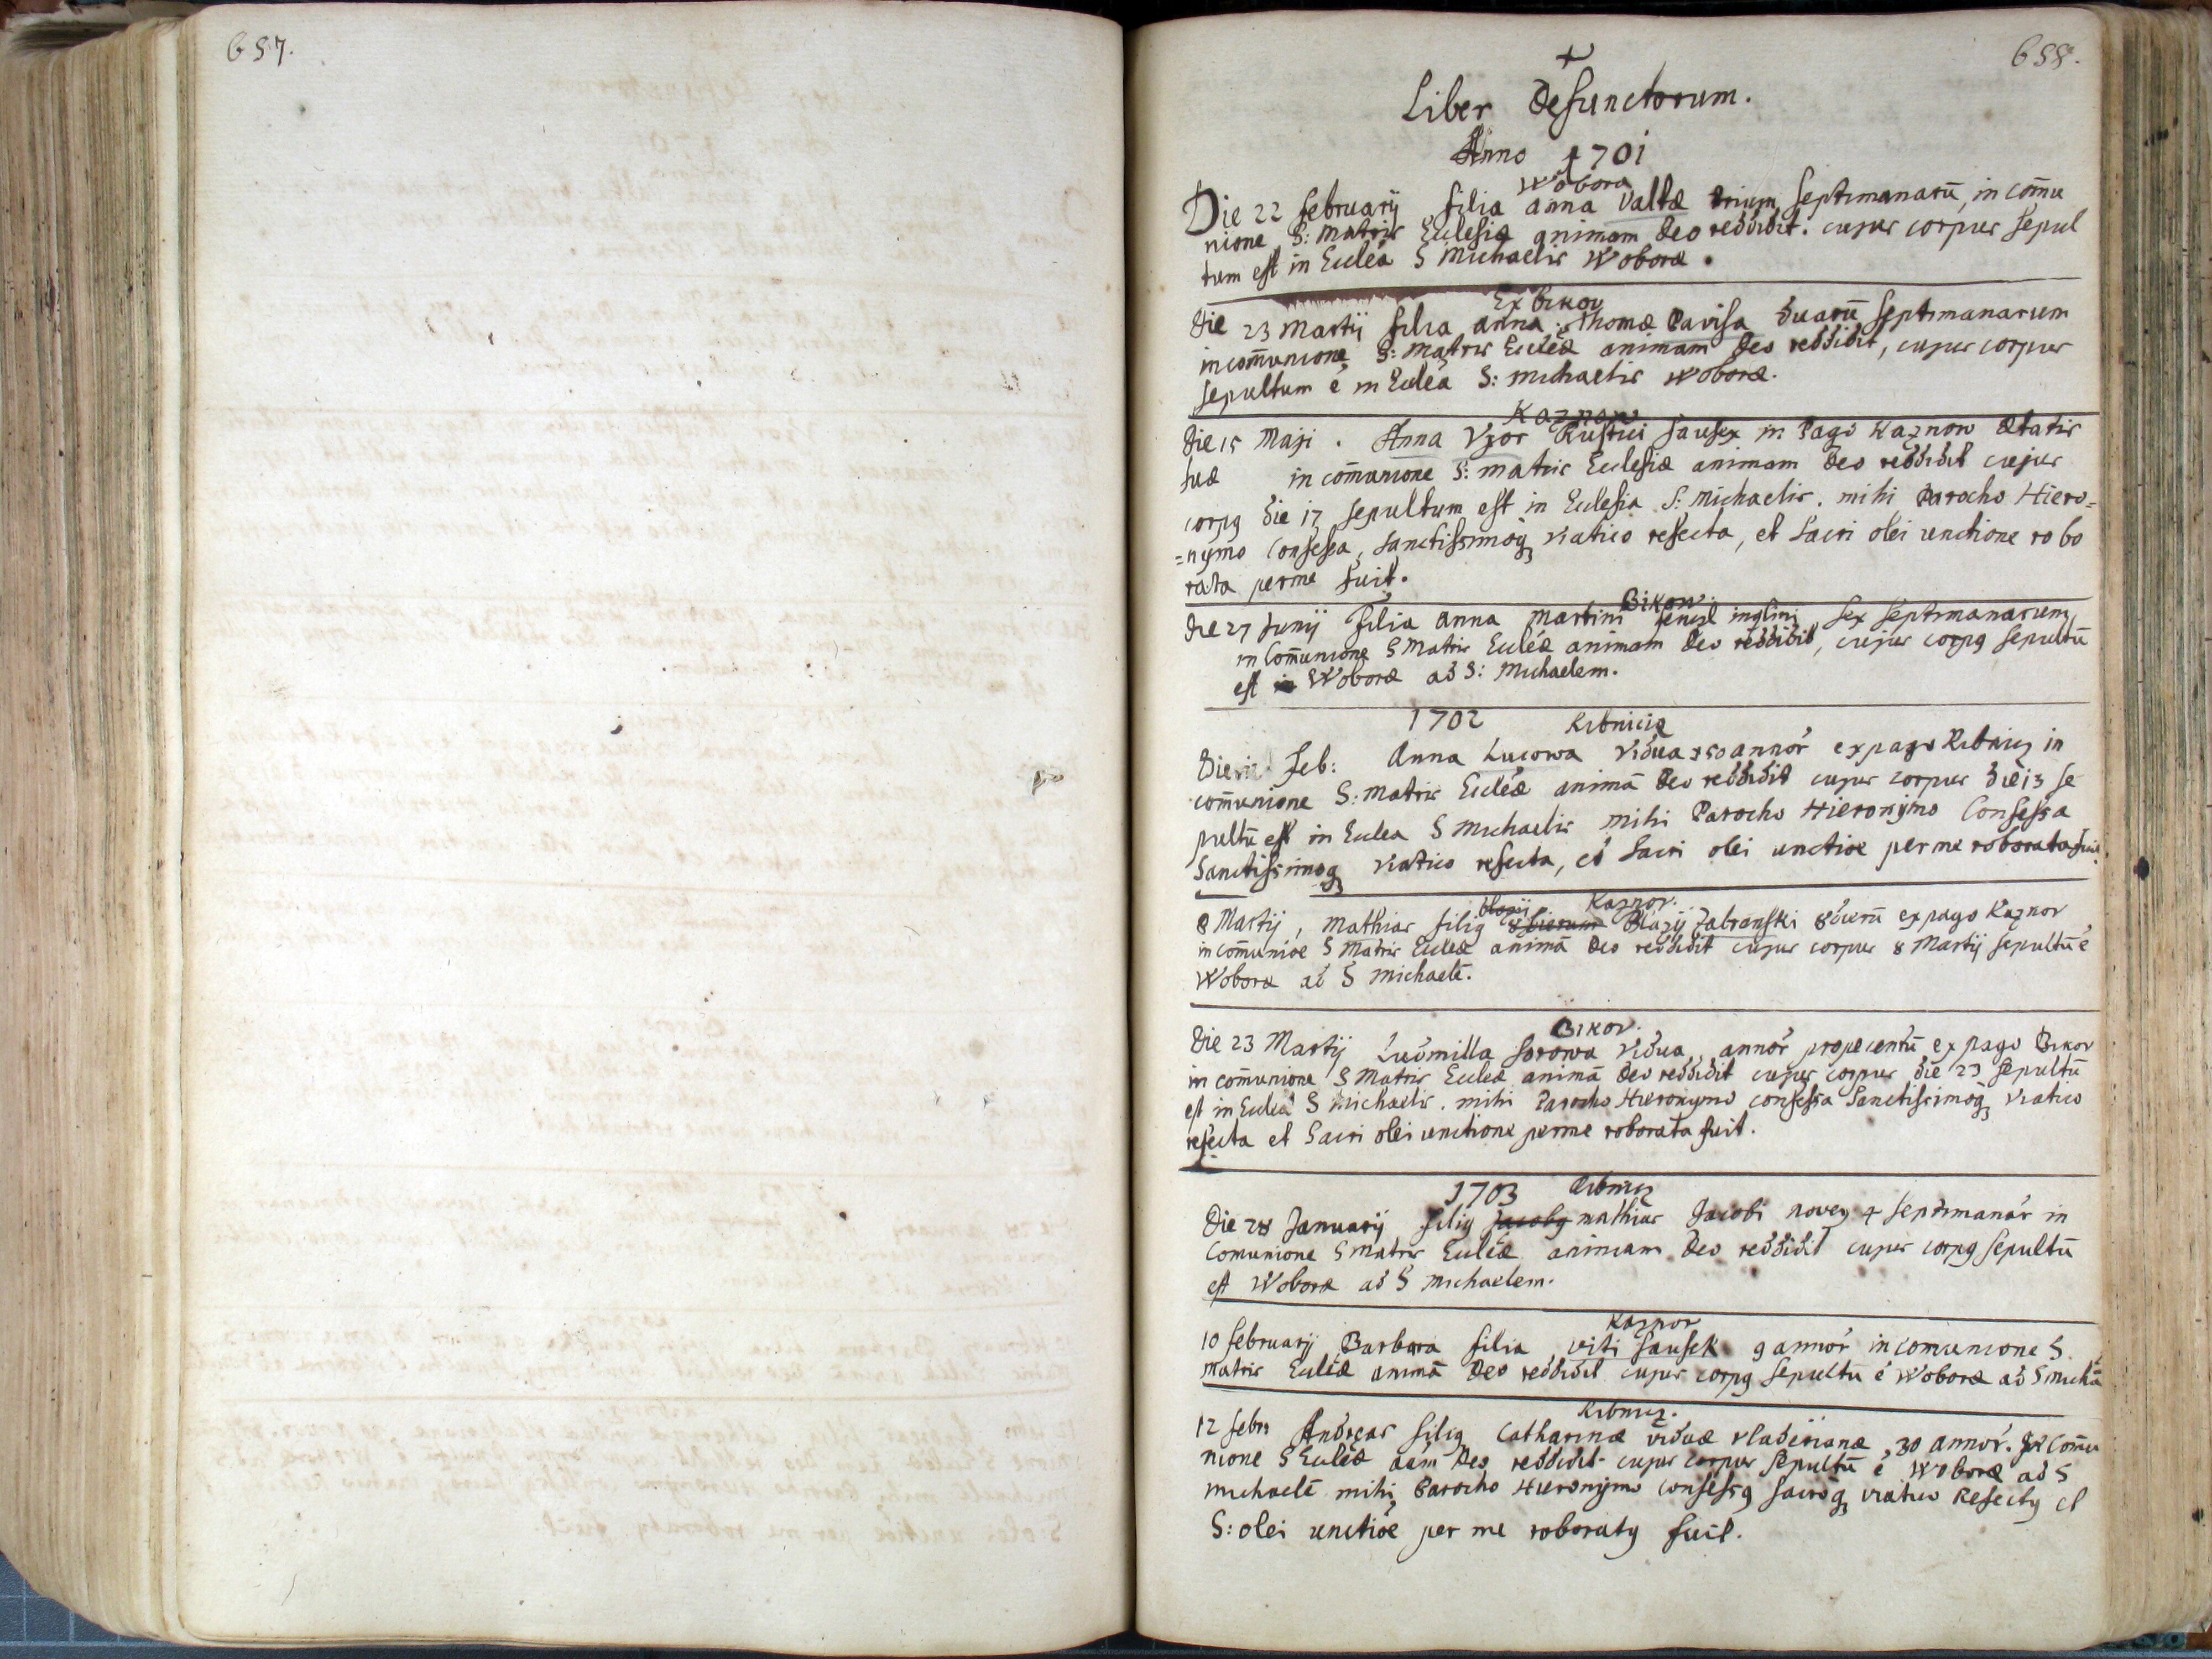 657.
658.
Liber Defunctorum.
Anno 1701
Wobora
Die 22 februarij filia anna Valtæ trium septimanarū, in comu
nione S: Matris Eclesiæ animam Deo reddidit. cujus corpus sepul
tum est in Eccleá S Michaelis Woboræ.
Ex Bikov
Die 23 Martij filia anna Thomæ Pavisa duarū septimanarum
in com̄unione S: Matris Eccleæ animam Deo reddidit, cujus corpus
sepultum é in Eccleá S: Michaelis Woboræ.
Kaznow
Die 15 Maji. Anna Vxor Rustici sausex in Pago Kaznow Ætatis
suæ in com̄unione S: matris Ecclesiæ animam Deo reddidit cujus
corpq die 17 sepultum est in Ecclesia S: Michaelis. mihi Parocho Hiero=
=nÿmo Confessa, sanctissimoq viatico refecta, et Sacri olei unctione robo
rata per me fuit.
Bikow.
Die 27 Junij Filia Anna Martini inglini sex septimanarum
in Com̄unione S Matris Eccleæ animam Deo reddidit, cujus corpq sepultū
est Woboræ ad S: Michaelem.
1702 Ribniciæ
Die Feb: Anna Lucowa Vidua 50 annor ex pago Ribnicz in
com̄unione S: Matris Eccleæ animā Deo reddidit cujus corpus die 13 se
pultū est in Ecclea S Michaelis mihi Parocho Hieronÿmo Confessa
Sanctissimoq viatico refecta, et Sacri olei unctioe per me roborata fuit.
blazij Kaznov.
8 Martij, Mathias filiq Blazij Zabranski 8 dierū ex pago Kaznov
in com̄unioe S Matris Eccleæ animā Deo reddidit cujus corpus 8 Martij sepultū é
Woboræ ad S Michaelē.
Bikov.
Die 23 Martij Ludmilla sorowa Vidua, annor prope centū ex pago Bikov
in com̄unione S Matris Eccleæ animā Deo reddidit cujus corpus die 23 sepultū
est in Ecclea S Michaelis. mihi Parocho Hieronymo confessa Sanctissimoq viatico
refecta et Sacri olei unctione per me roborata fuit.
1703 Ribnicz
Die 28 Januarij filiq Jacobq mathias Jacobi novey 4 septimanar in
Comunione S Matris Eccleæ animam Deo reddidit cujus corpq sepultū
est Woboræ ad S Michaelem.
Kaznov
10 februarij Barbara filia viti sausek 9 annor in comunione S
Matris Eccleæ animā Deo reddidit cujus corpq sepultū é Woboræ ad S Michā
Ribnicz.
12 febr Andreas filiq Catharinæ viduæ vladirianæ, 30 annor. In Comu
nione S Eccleæ aám Deo reddidit cujus corpus sepultū é Woboræ ad S
Michaelē mihi Parocho Hieronÿmo confessq sacroq viatico Refectq et
S: olei unctióe per me roboratq fuit.